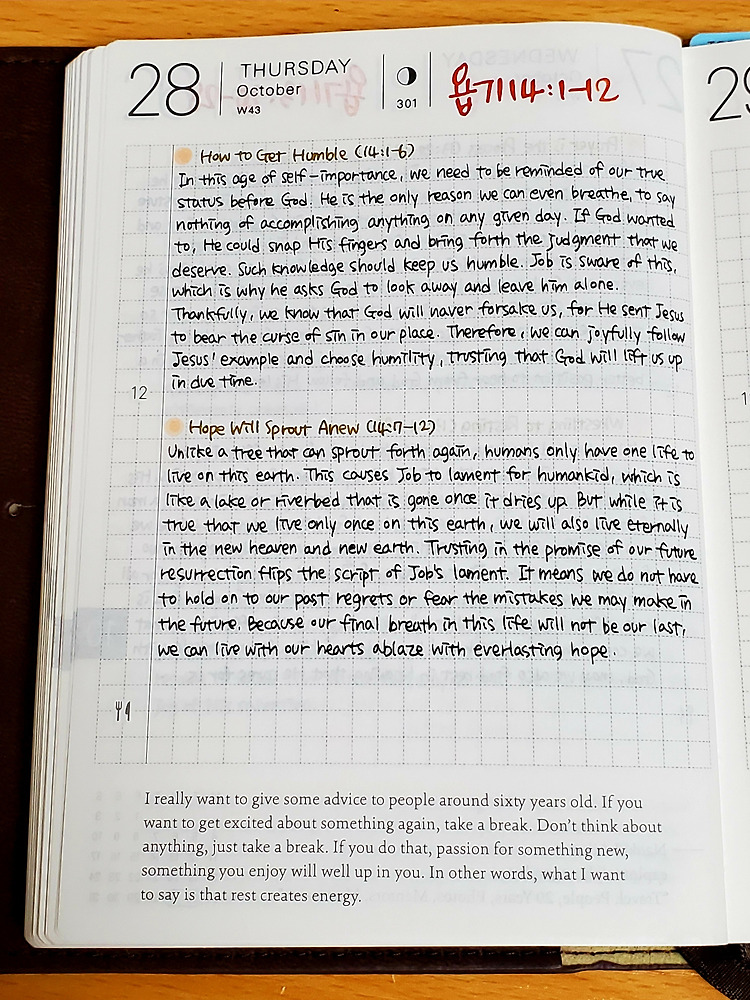 28
THURSDAY
October
W43
301
욥기14:1-12
29
How to Get Humble (14:1-6)
In this age of self-importance, we need to be reminded of our true
status before God. He is the only reason we can even breathe, to say
nothing of accomplishing anything on any given day. If God wanted
to, He could snap His fingers and bring forth the judgment that we
deserve. Such knowledge should keep us humble. Job is sware of this,
which is why he asks God to look away and leave him alone.
Thankfully, we know that God will naver forsake us, for He sent Jesus
to bear the curse of sin in our place. Therefore, we can joyfully follow
Jesus' example and choose humility, trusting that God will lift us up
in due time.
12
Hope Will Sprout Anew (14:7-12)
Unlike a tree that can sprout forth again, humans only have one life to
live on this earth. This causes Job to lament for humankid, which is
like a lake or riverbed that is gone once it dries up. But while it is
true that we live only once on this earth, we will also live eternally
in the new heaven and new earth. Trusting in the promise of our future
resurrection flips the script of Job's lament. It means we do not have
to hold on to our past regrets or fear the mistakes we may make in
the future. Because our final breath in this life will not be our last,
we can live with our hearts ablaze with everlasting hope.
I really want to give some advice to people around sixty years old. If you
want to get excited about something again, take a break. Don't think about
anything, just take a break. If you do that, passion for something new,
something you enjoy will well up in you. In other words, what I want
to say is that rest creates energy.